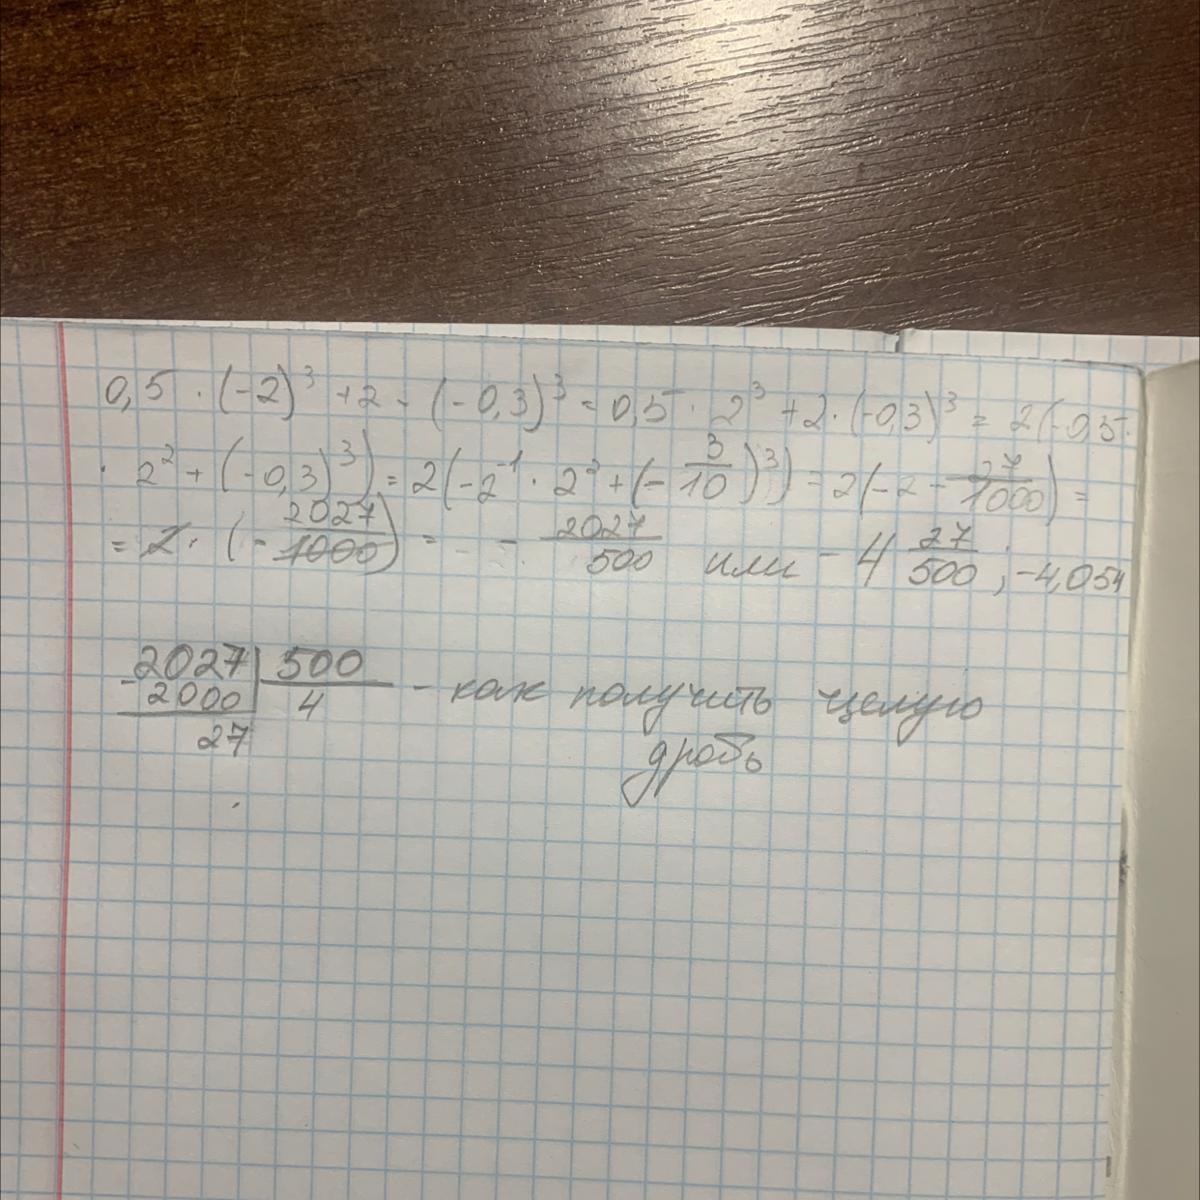 0,5 · (-2)³ + 2 · (-0,3)³ = 0,5 · 2³ + 2 · (-0,3)³ = 2(-0,5 ·
· 2² + (-0,3)³) = 2(-2⁻¹ · 2² + (-3/10)³) = 2(-2 - 27/1000) =
= 2 · (-2027/1000) = - 2027/500 или - 4 27/500; -4,054
-2027 | 500
2000 | 4 - как получить целую
27 дробь